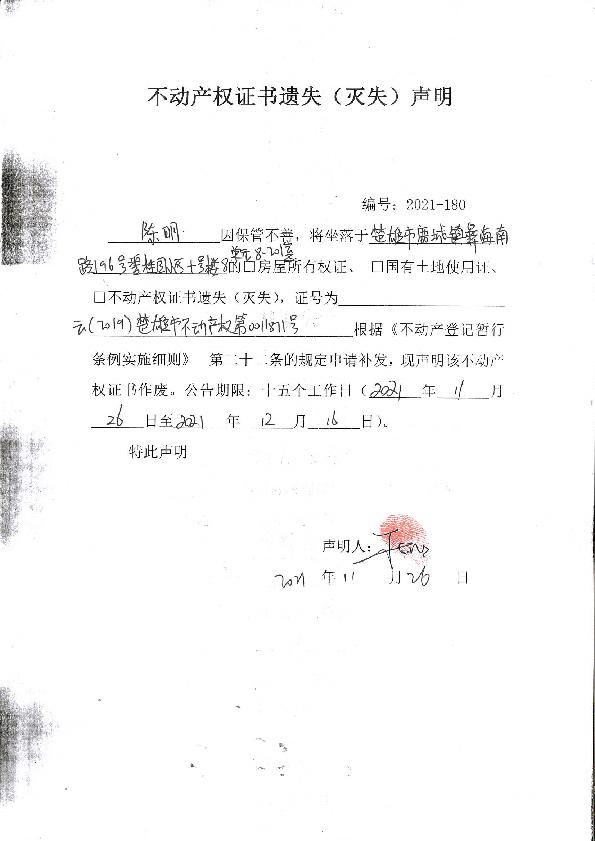 不动产权证书遗失（灭失）声明
编号：2021-180
陈明 因保管不善，将坐落于楚雄市鹿城镇彝海南
单元8-201室
路196号碧桂园小区十号楼8的口房屋所有权证、口国有土地使用证、
口不动产权证书遗失（灭失），证号为
云(2019)楚雄市不动产权第0011871号 根据《不动产登记暂行
条例实施细则》 第二十二条的规定申请补发，现声明该不动产
权证书作废。公告期限：十五个工作日（2021 年 11 月
26 日至2021 年 12 月 16 日）。
特此声明
声明人：
2021 年 11 月 26 日